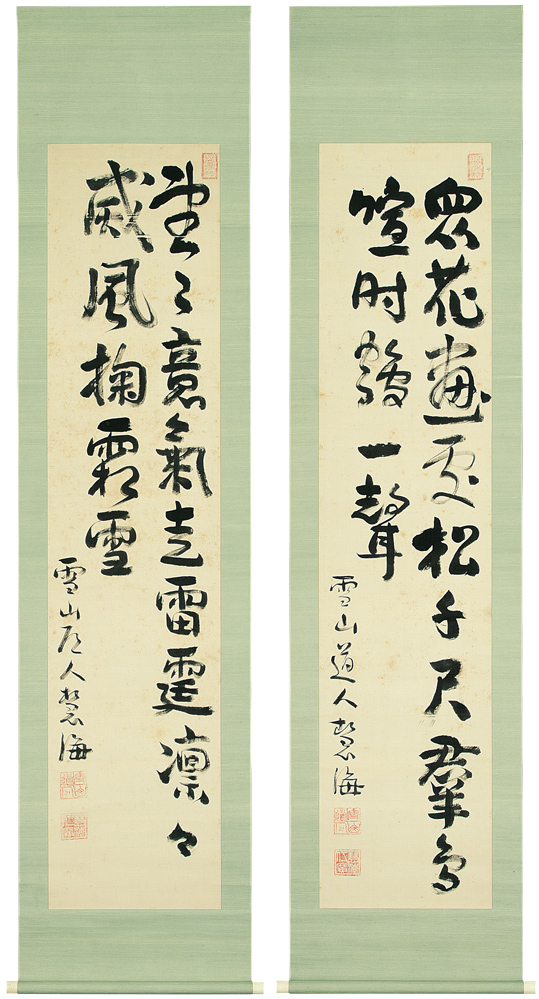 衆花盡处松千尺羣鳥
喧时鶴一聲
雪山道人慧海
堂々意氣走雷霆凛々
威風掬霜雪
雪山道人慧海